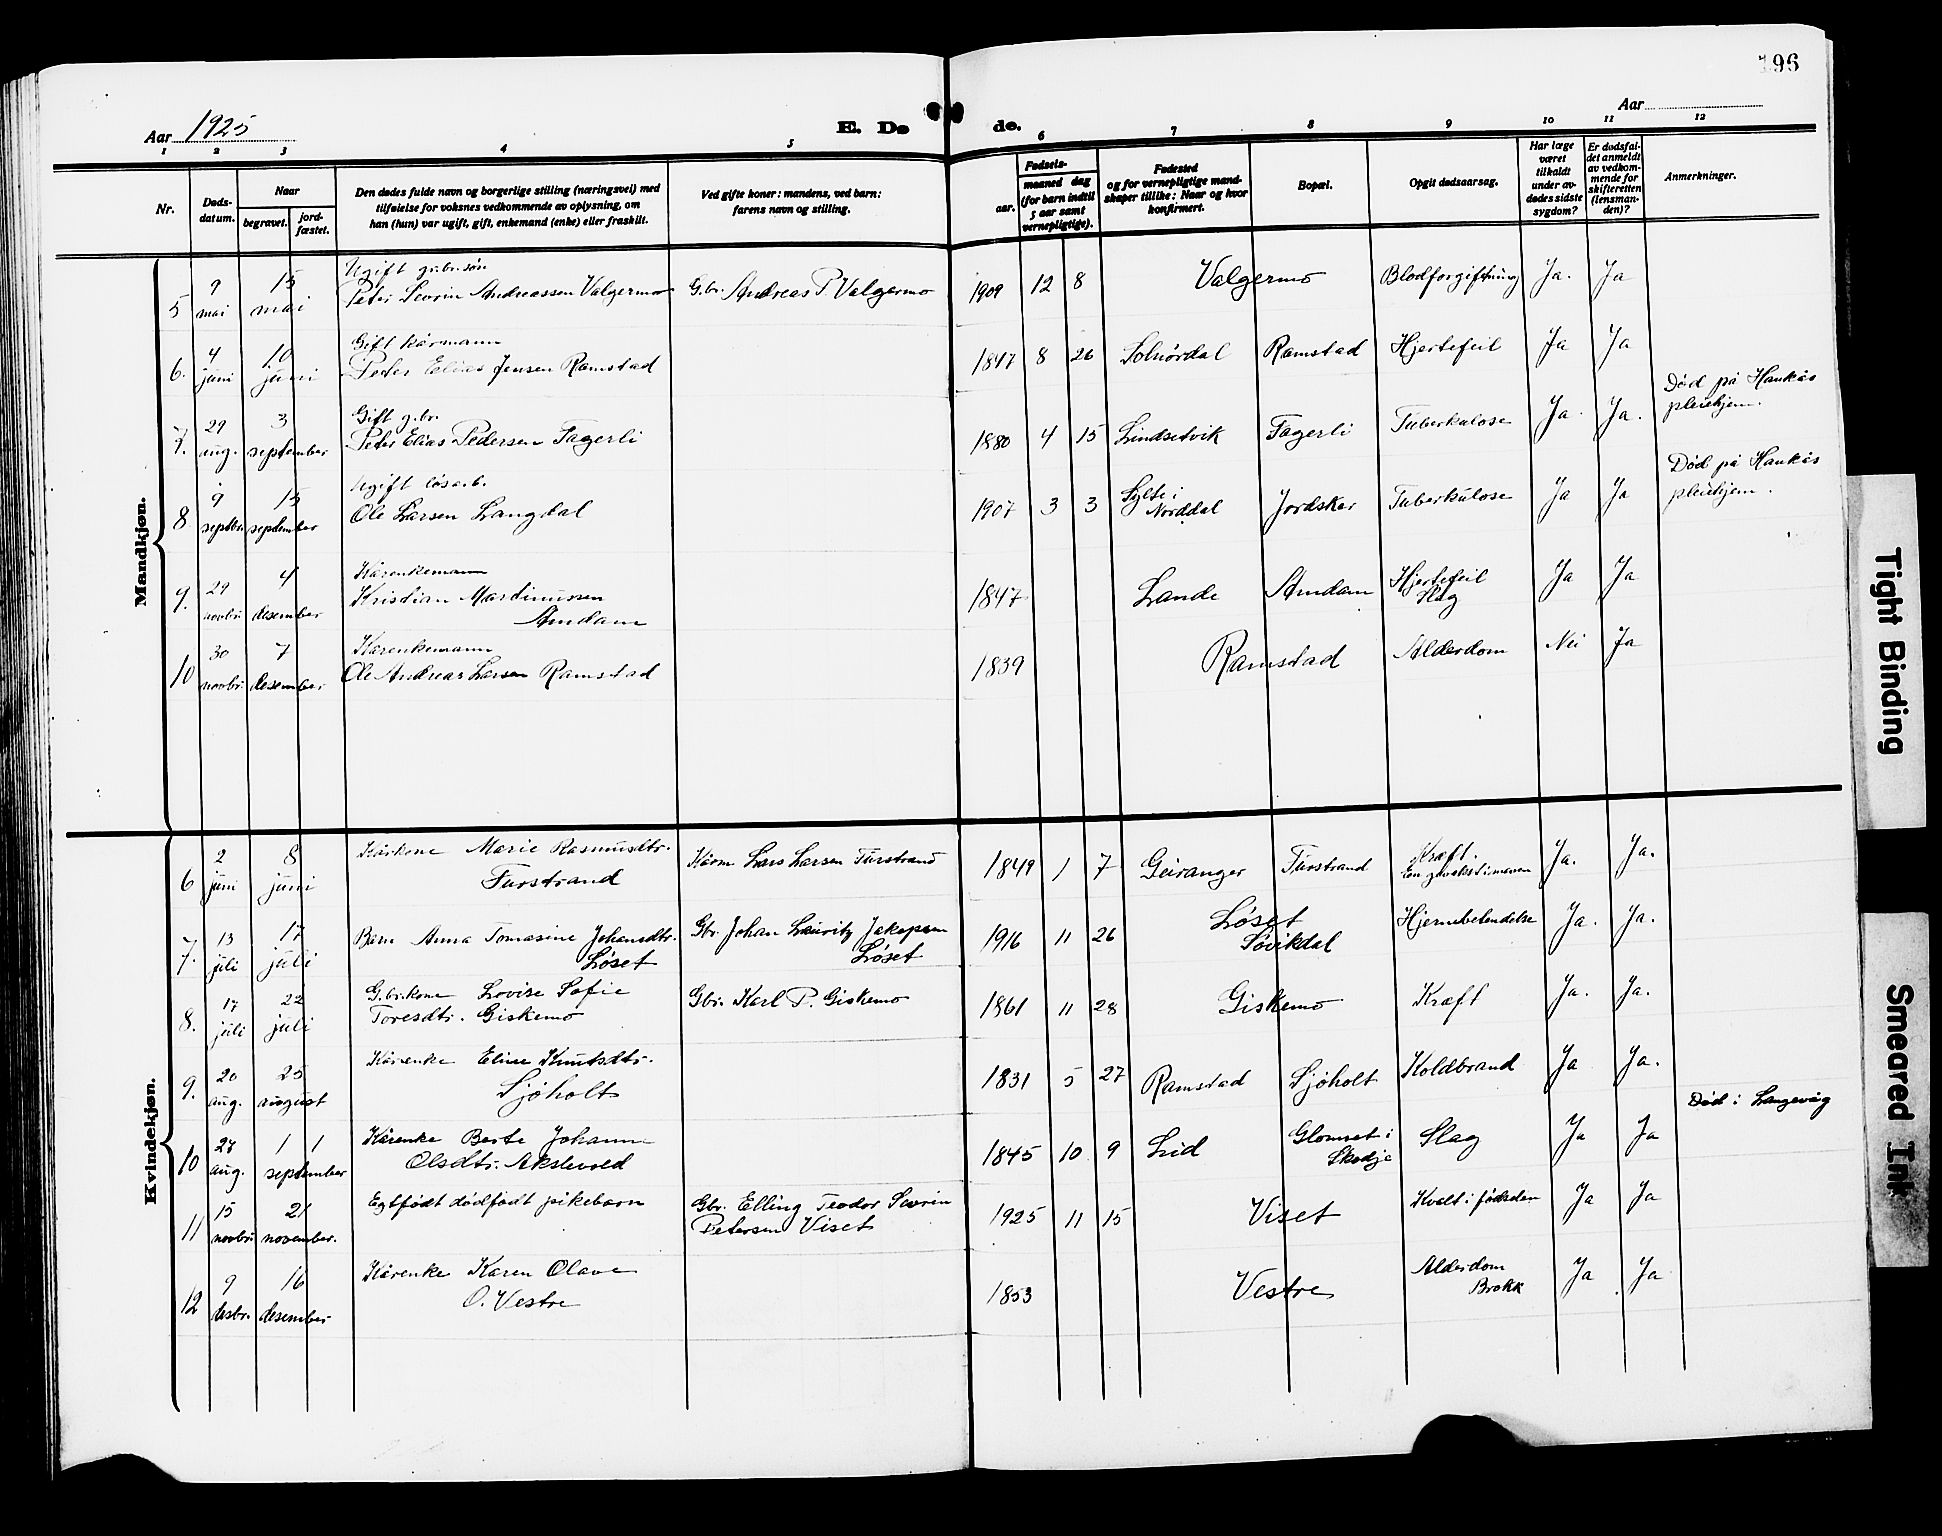 196
Aar 1925
E. Dø
de.
Aar
1 2 3 4 5 6 7 8 9 10 11 12
Nr.
Døds-
datum.
Naar
begravet.
jord-
fæstet.
Den dødes fulde navn og borgerlige stilling (næringsvei) med
tilføielse for voksnes vedkommende av oplysning, om
han (hun) var ugift, gift, enkemand (enke) eller fraskilt.
Ved gifte koner: mandens, ved barn:
farens navn og stilling.
Fødsels-
aar.
maaned dag
(for barn indtil
5 aar samt
vernepligtige).
Fødested
og for vernepligtige mand-
skaper tillike: Naar og hvor
konfirmert.
Bopæl.
Opgit dødsaarsag.
Har læge
været
tilkaldt
under av-
dødes sidste
sygdom?
Er dødsfal-
det anmeldt
av vedkom-
mende for
skifteretten
(lensman-
den)?
Anmerkninger.
Mandkjøn.
5 9 mai 15 mai
Ugift gr.br.søn
Peter Sevrin Andreassen Valgermo G.br. Andreas P. Valgermo 1909 12 8 Valgermo Blodforgiftning Ja. Ja
6. 4 juni 10 juni
Gift kårmann
Peder Elias Jensen Ramstad 1847 8 26 Solnørdal Ramstad Hjertefeil Ja Ja
7. 29 aug. 3 september
Gift g.br.
Peter Elias Pedersen Fagerli 1880 4 15 Lindsetvik Fagerli Tuberkulose Ja. Ja.
Død på Haukås
pleiehjem.
8 9 septbr. 15 september
Ugift løsarb.
Ole Larsen Langdal 1907 3 3 Sylte i
Norddal Jordskar Tuberkulose Ja Ja
Død på Haukås
pleiehjem.
9. 29 novbr. 4 desember
Kårenkemann
Kristian Martinussen
Amdam 1847 Lande Amdam Hjertefeil
Slag Ja Ja
10 30 novbr. 7 desember
Kårenkemann
Ole Andreas Larsen Ramstad 1839 Ramstad Alderdom Nei Ja
Kvindekjøn.
6 2 juni 8 juni
Kårkone Marie Rasmusdtr.
Furstrand Kårm Lars Larsen Furstrand 1849 1 7 Geiranger Furstrand Kræft. Ja. Ja.
7. 13 juli 17 juli
Barn Anna Tomasine Johansdtr.
Løset Gbr. Johan Lauritz Jakopsen
Løset 1916 11 26 Løset
Søvikdal Hjernebetendelse Ja. Ja.
8. 17 juli 22 juli
G.br.kone Lovise Sofie
Toresdtr. Giskemo Gbr. Karl P. Giskemo 1861 11 28 Giskemo Kræft Ja. Ja.
9. 20 aug. 25 august
Kårenke Eline Knutsdtr.
Sjøholt 1831 5 27 Ramstad Sjøholt Koldbrand Ja Ja.
10 27 aug. 1 1 september
Kårenke Berte Johanne
Olsdtr. Akslevold 1845 10 9 Lid Glomset i
Skodje Slag Ja Ja
Død i Langevåg
11 15 novbr. 21 november.
Egtefødt dødfødt pikebarn Gbr. Elling Teodor Sevrin
Petersen Viset 1925 11 15 Viset Kvalt i fødselen Ja Ja
12 9 desbr. 16 desember
Kårenke Karen Olave
O. Vestre 1853 Vestre Alderdom
Brokk Ja Ja
Tight Binding
Smeared Ink